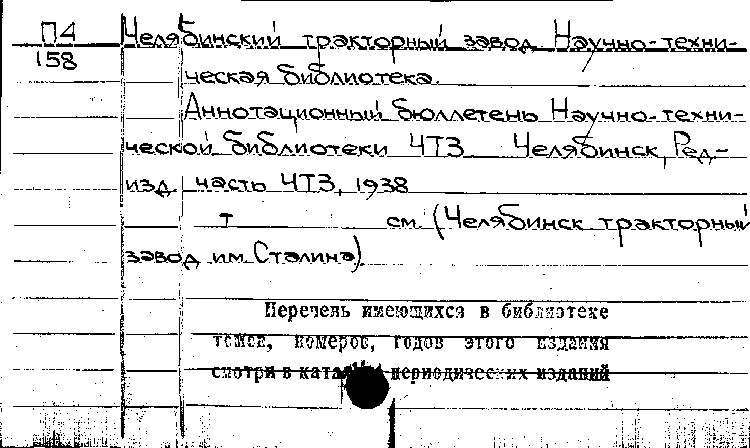 П4 Челябинский тракторный завод. Научно-техни-
158
ческая библиотека.
Аннотационный бюллетень Научно-техни-
ческой библиотеки ЧТЗ Челябинск, Ред-
изд. часть ЧТЗ, 1938
т см. (Челябинск. тракторный
завод им. Сталина).
Перечень имеющихся в библиотеке
томов, номеров, годов этого издания
смотри в каталоге периодических изданий